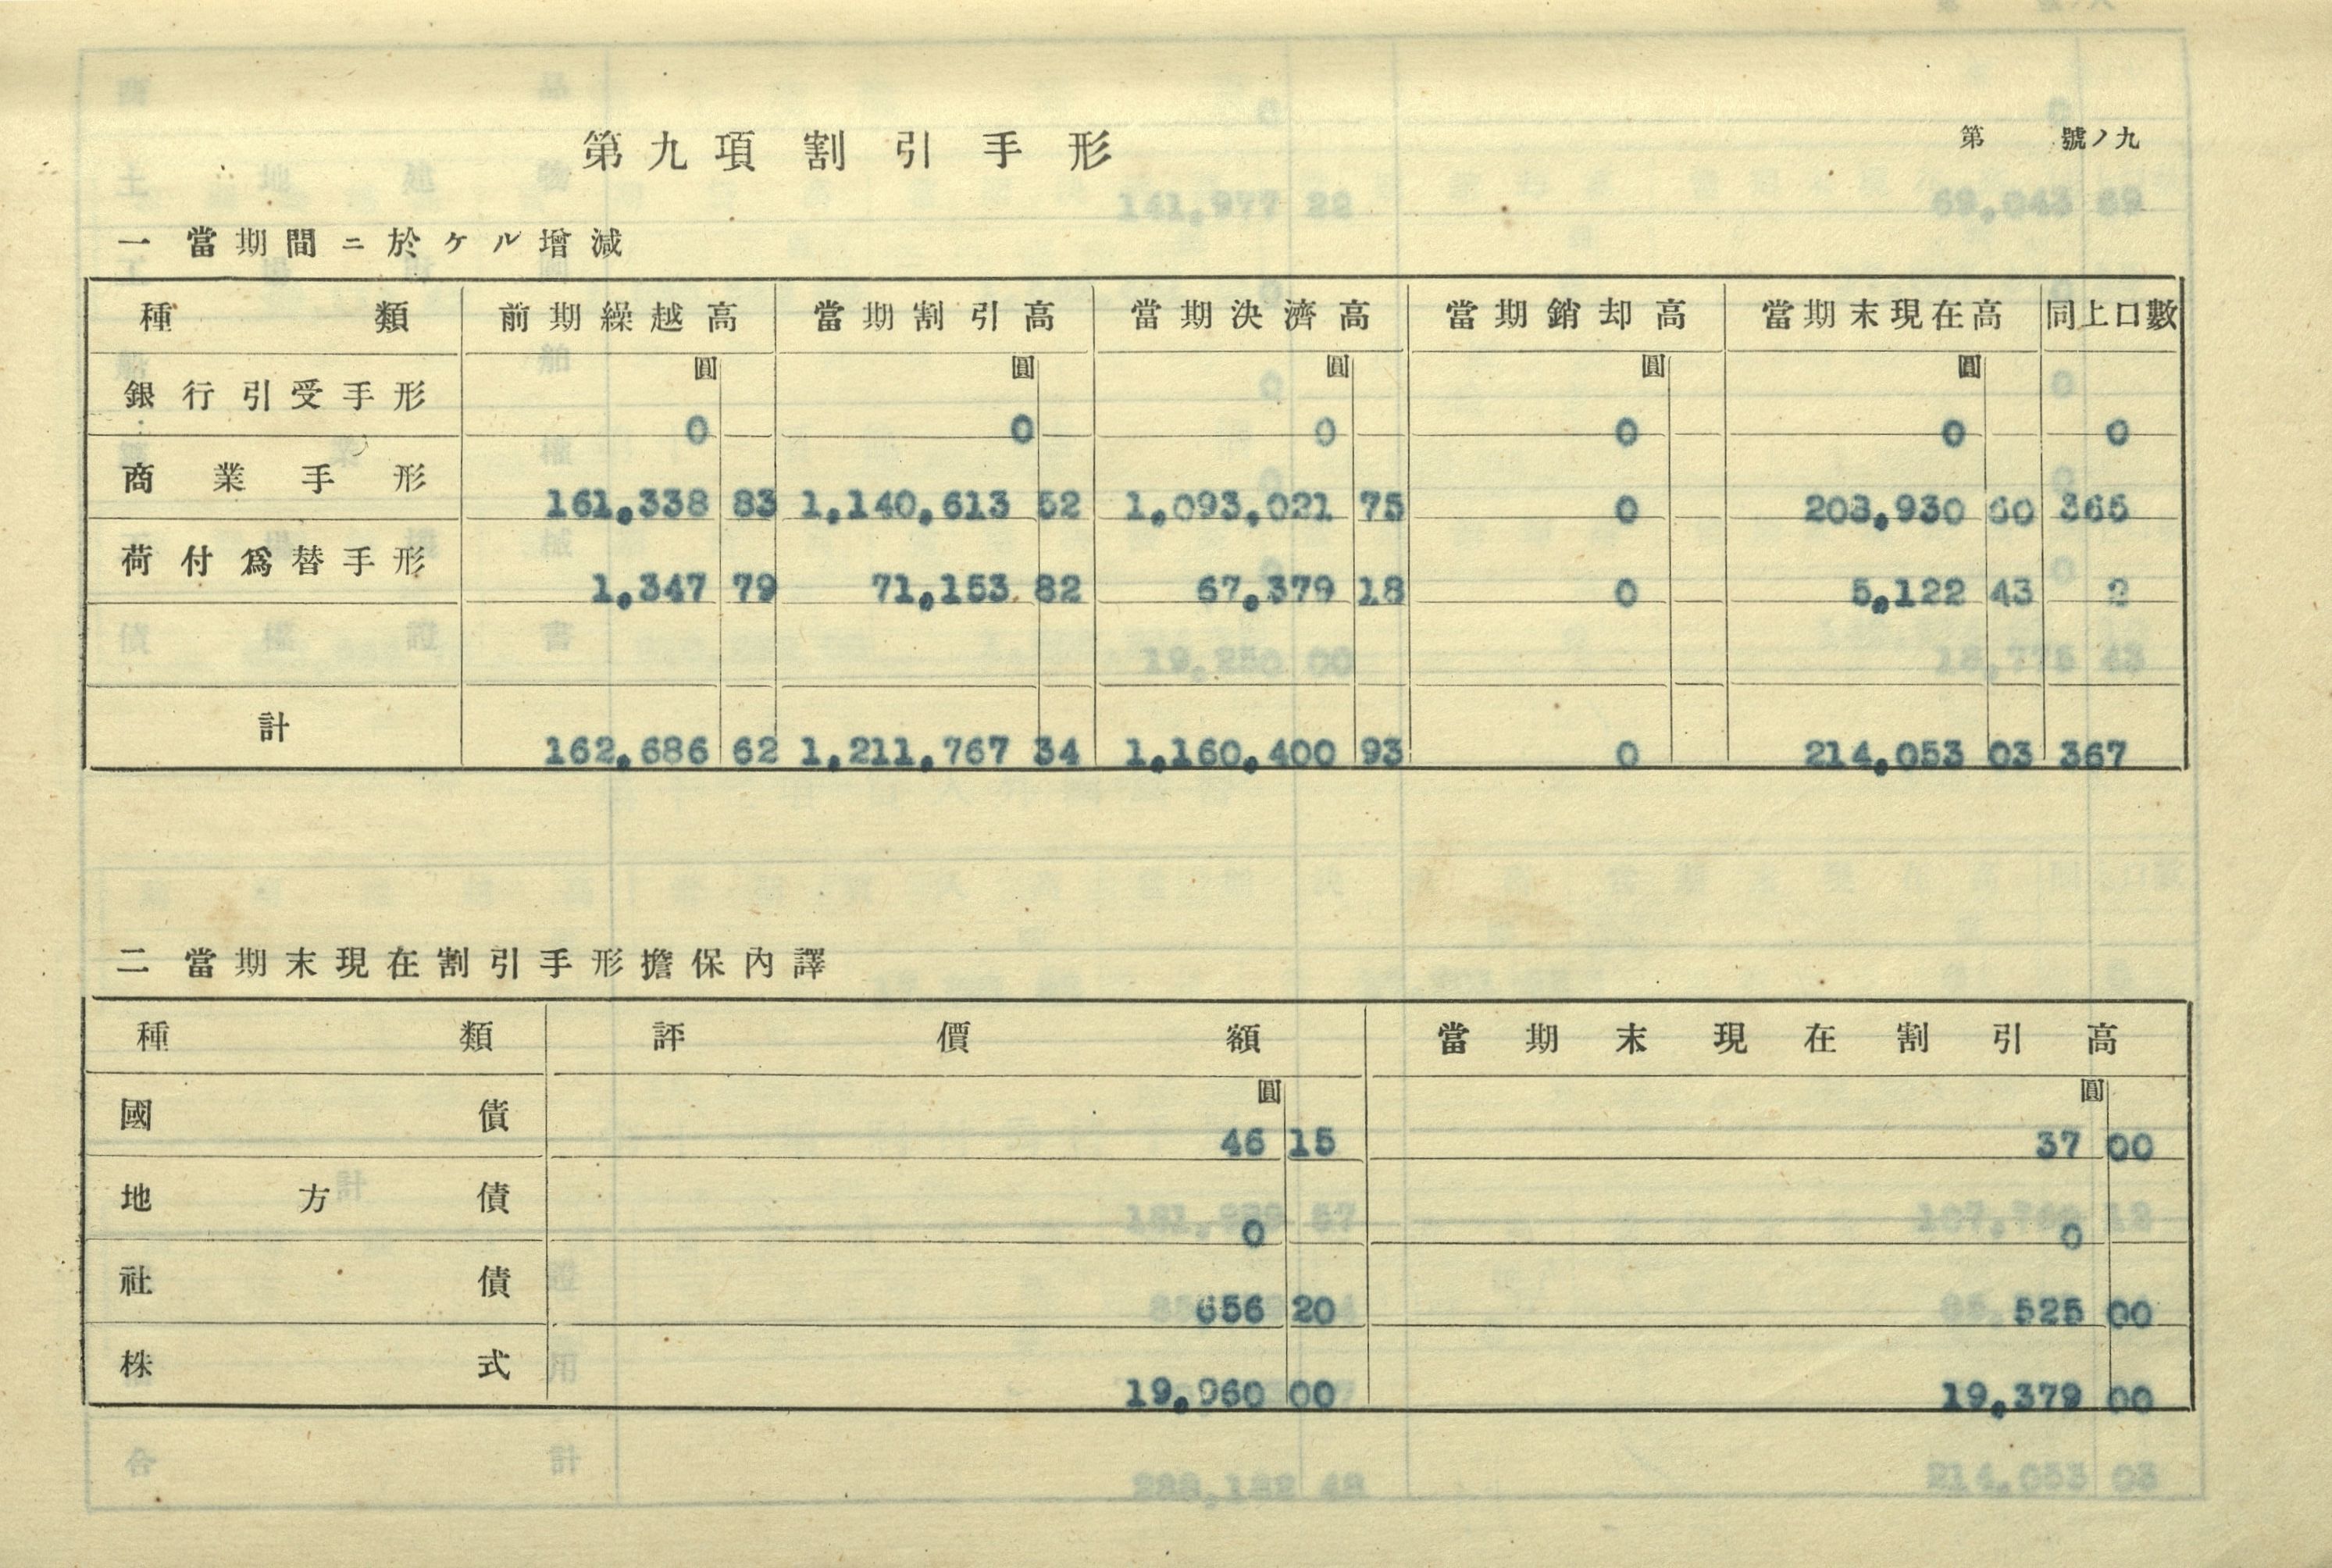 第九項 割引手形
第 號ノ九
一 當期間ニ於ケル增減
種類 前期繰越高 當期割引高 當期決濟高 當期銷却高 當期末現在高 同上口數
圓 圓 圓 圓 圓
銀行引受手形 0 0 0 0 0 0
商業手形 161,338 83 1,140,613 52 1,093,021 75 0 208,930 60 365
荷付爲替手形 1,347 79 71,153 82 67,379 18 0 5,122 43 2
計 162,686 62 1,211,767 34 1,160,400 93 0 214,053 03 367
二 當期末現在割引手形擔保內譯
種類 評價額 當期末現在割引高
圓 圓
國債 46 15 37 00
地方債 0 0
社債 656 20 525 00
株式 19,960 00 19,379 00